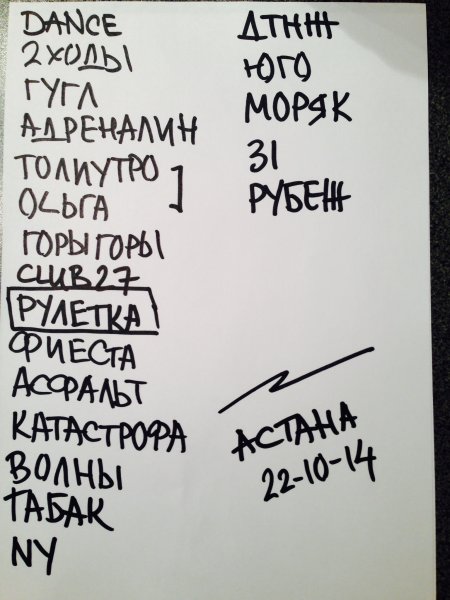 DANCE
2ХОДЫ
ГУГЛ
АДРЕНАЛИН
ТОЛИУТРО
ОЛЬГА
ГОРЫГОРЫ
CLUB27
РУЛЕТКА
ФИЕСТА
АСФАЛЬТ
КАТАСТРОФА
ВОЛНЫ
ТАБАК
NY
ДТНЖ
ЮГО
МОРЯК
31
РУБЕЖ
АСТАНА
22-10-14